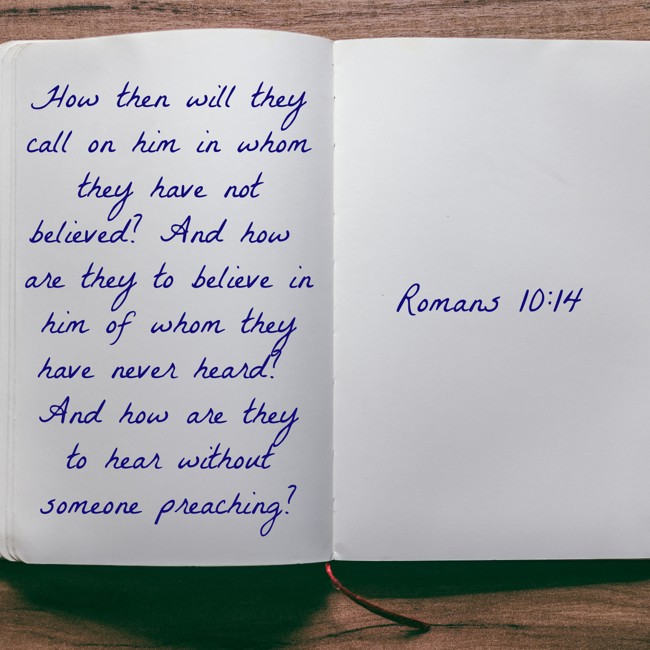 How then will they
call on him in whom
they have not
believed? And how
are they to believe in
him of whom they
have never heard?
And how are they
to hear without
someone preaching?
Romans 10:14